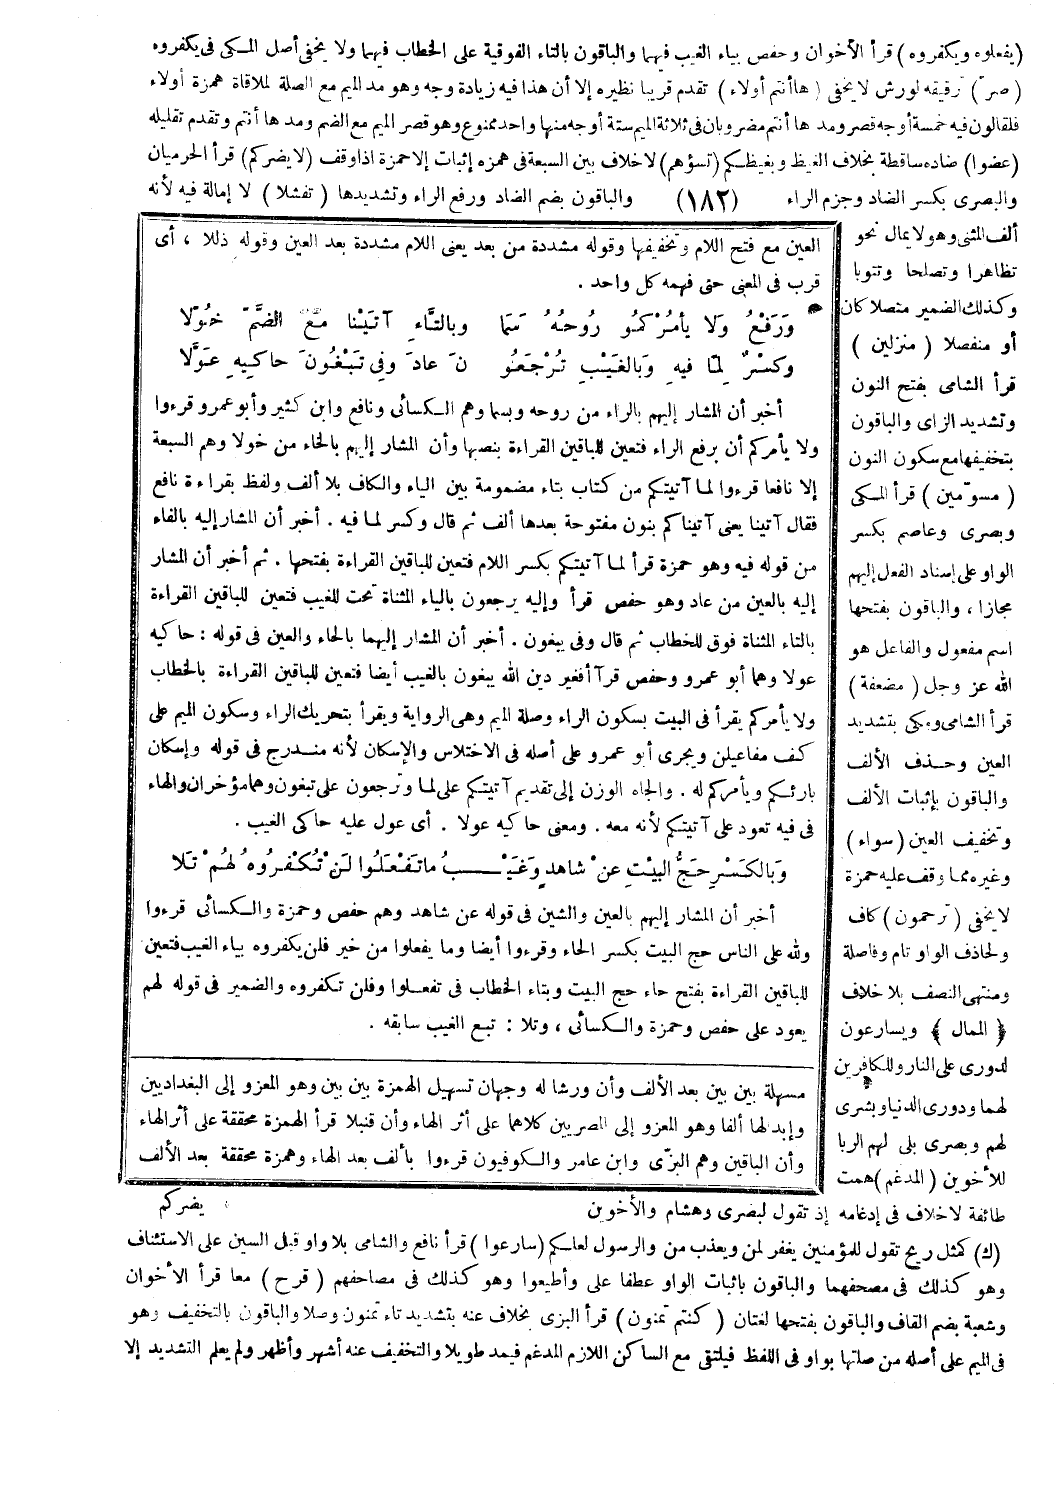 (يفعلوه ويكفروه) قرأ الأخوان وحفص بياء الغيب فيهما والباقون بالتاء الفوقية على الخطاب فيهما ولا يخفى أصل المكى فى يكفروه
(صرّ) ترقيقه لورش لا يخفى (هاأنتم أولاء) تقدم قريبا نظيره إلا أن هذا فيه زيادة وجه وهو مد الميم مع الصلة لملاقاة همزة أولاء
فلقالون فيه خمسة أوجه قصر ومد هاأنتم مضروبان فى ثلاثة الميم ستة أوجه منها واحد ممنوع وهو قصر الميم مع الضم ومد هاأنتم وتقدم تقليله
(عضوا) ضاده ساقطة بخلاف الغيظ وبغيظكم (تسؤهم) لا خلاف بين السبعة فى همزه إثبات إلا حمزة اذا وقف (لا يضركم) قرأ الحرميان
والبصرى بكسر الضاد وجزم الراء (١٨٢) والباقون بضم الضاد ورفع الراء وتشديدها (تفشلا) لا إمالة فيه لأنه
ألف المثنى وهو لا يمال نحو
تظاهرا وتصلحا وتتوبا
وكذلك الضمير متصلا كان
أو منفصلا (منزلين)
قرأ الشامى بفتح النون
وتشديد الزاى والباقون
بتخفيفها مع سكون النون
(مسوّمين) قرأ المكى
وبصرى وعاصم بكسر
الواو على إسناد الفعل إليهم
مجازا، والباقون بفتحها
اسم مفعول والفاعل هو
الله عز وجل (مضعفة)
قرأ الشامى ومكى بتشديد
العين وحذف الألف
والباقون بإثبات الألف
وتخفيف العين (سواء)
وغيره مما وقف عليه حمزة
لا يخفى (ترحمون) كاف
ولحاذف الواو تام وفاصلة
ومنتهى النصف بلا خلاف
﴿الممال﴾ ويسارعون
لدورى على النار وللكافرين
لهما ودورى الدنيا وبشرى
لهم وبصرى بلى لهم الربا
للأخوين (المدغم) همت
العين مع فتح اللام وتخفيفها وقوله مشددة من بعد يعنى اللام مشددة بعد العين وقوله ذللا، أى
قرب فى المعنى حتى فهمه كل واحد.
وَرَفْعُ وَلا يأمُرْكمُو رُوحُهُ سَمَا وبالتَّاءِ آتَيْنا مَعَ الضَّمّ خُوّلا
وكسْرٌ لِمَا فيهِ وَبالغَيْبِ تُرْجَعُنو نَ عادَ وفى تَبْغُونَ حاكيهِ عَوَّلا
أخبر أن المشار إليهم بالراء من روحه وبسما وهم الكسائى ونافع وابن كثير وأبو عمرو قرءوا
ولا يأمركم أن برفع الراء فتعين للباقين القراءة بنصبها وأن المشار إليهم بالخاء من خولا وهم السبعة
إلا نافعا قرءوا لما آتيتكم من كتاب بتاء مضمومة بين الياء والكاف بلا ألف ولفظ بقراءة نافع
فقال آتينا يعنى آتيناكم بنون مفتوحة بعدها ألف ثم قال وكسر لما فيه. أخبر أن المشار إليه بالفاء
من قوله فيه وهو حمزة قرأ لما آتيتكم بكسر اللام فتعين للباقين القراءة بفتحها. ثم أخبر أن المشار
إليه بالعين من عاد وهو حفص قرأ وإليه يرجعون بالياء المثناة تحت للغيب فتعين للباقين القراءة
بالتاء المثناة فوق للخطاب ثم قال وفى يبغون. أخبر أن المشار إليهما بالحاء والعين فى قوله: حاكيه
عولا وهما أبو عمرو وحفص قرآ أفغير دين الله يبغون بالغيب أيضا فتعين للباقين القراءة بالخطاب
ولا يأمركم يقرأ فى البيت بسكون الراء وصلة الميم وهى الرواية ويقرأ بتحريك الراء وسكون الميم على
كف مفاعيلن ويجرى أبو عمرو على أصله فى الاختلاس والإسكان لأنه مندرج فى قوله وإسكان
بارئكم ويأمركم له. وألجاه الوزن إلى تقديم آتيتكم على لما وترجعون على تبغون وهما مؤخران والهاء
فى فيه تعود على آتيتكم لأنه معه. ومعنى حاكيه عولا. أى عول عليه حاكى الغيب.
وَبالكَسْرِ حَجُّ البيْتِ عنْ شاهدٍ وَغَيْـبُ ما تَفْعَلُوا لَنْ تُكْفَروهُ لهُمْ تَلا
أخبر أن المشار إليهم بالعين والشين فى قوله عن شاهد وهم حفص وحمزة والكسائى قرءوا
ولله على الناس حج البيت بكسر الحاء وقرءوا أيضا وما يفعلوا من خير فلن يكفروه بياء الغيب فتعين
للباقين القراءة بفتح حاء حج البيت وبتاء الخطاب فى تفعلوا وفلن تكفروه والضمير فى قوله لهم
يعود على حفص وحمزة والكسائى، وتلا: تبع الغيب سابقه.
مسهلة بين بين بعد الألف وأن ورشا له وجهان تسهيل الهمزة بين بين وهو المعزو إلى البغداديين
وإبدالها ألفا وهو المعزو إلى المصريين كلاهما على أثر الهاء وأن قنبلا قرأ الهمزة محققة على أثر الهاء
وأن الباقين وهم البزّى وابن عامر والكوفيون قرءوا بألف بعد الهاء وهمزة محققة بعد الألف
طائفة لا خلاف فى إدغامه إذ تقول لبصرى وهشام والأخوين يضركم
(ك) كمثل ريح تقول للمؤمنين يغفر لمن ويعذب من والرسول لعلكم (سارعوا) قرأ نافع والشامى بلا واو قبل السين على الاستئناف
وهو كذلك فى مصحفهما والباقون باثبات الواو عطفا على وأطيعوا وهو كذلك فى مصاحفهم (قرح) معا قرأ الأخوان
وشعبة بضم القاف والباقون بفتحها لغتان (كنتم تمنون) قرأ البزى بخلاف عنه بتشديد تاء تمنون وصلا والباقون بالتخفيف وهو
فى الميم على أصله من صلتها بواو فى اللفظ فيلتقى مع الساكن اللازم المدغم فيمد طويلا والتخفيف عنه أشهر وأظهر ولم يعلم التشديد إلا